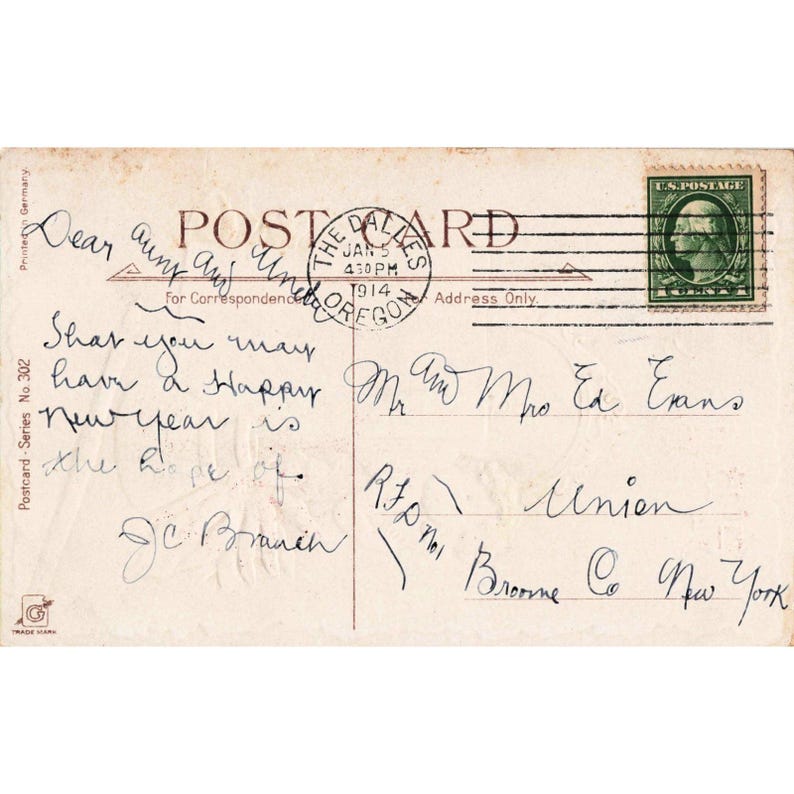 POST CARD
For Correspondence
for Address Only.
Printed in Germany.
Postcard - Series No. 302
G
TRADE MARK
THE DALLES
JAN 5
430 PM
1914
OREGON
U.S. POSTAGE
1 CENT 1
Dear Aunt and Uncle
That you may
have a Happy
New Year is
the hope of
J C Branch
Mr and Mrs Ed Evans
R F D No 1
Union
Broome Co New York